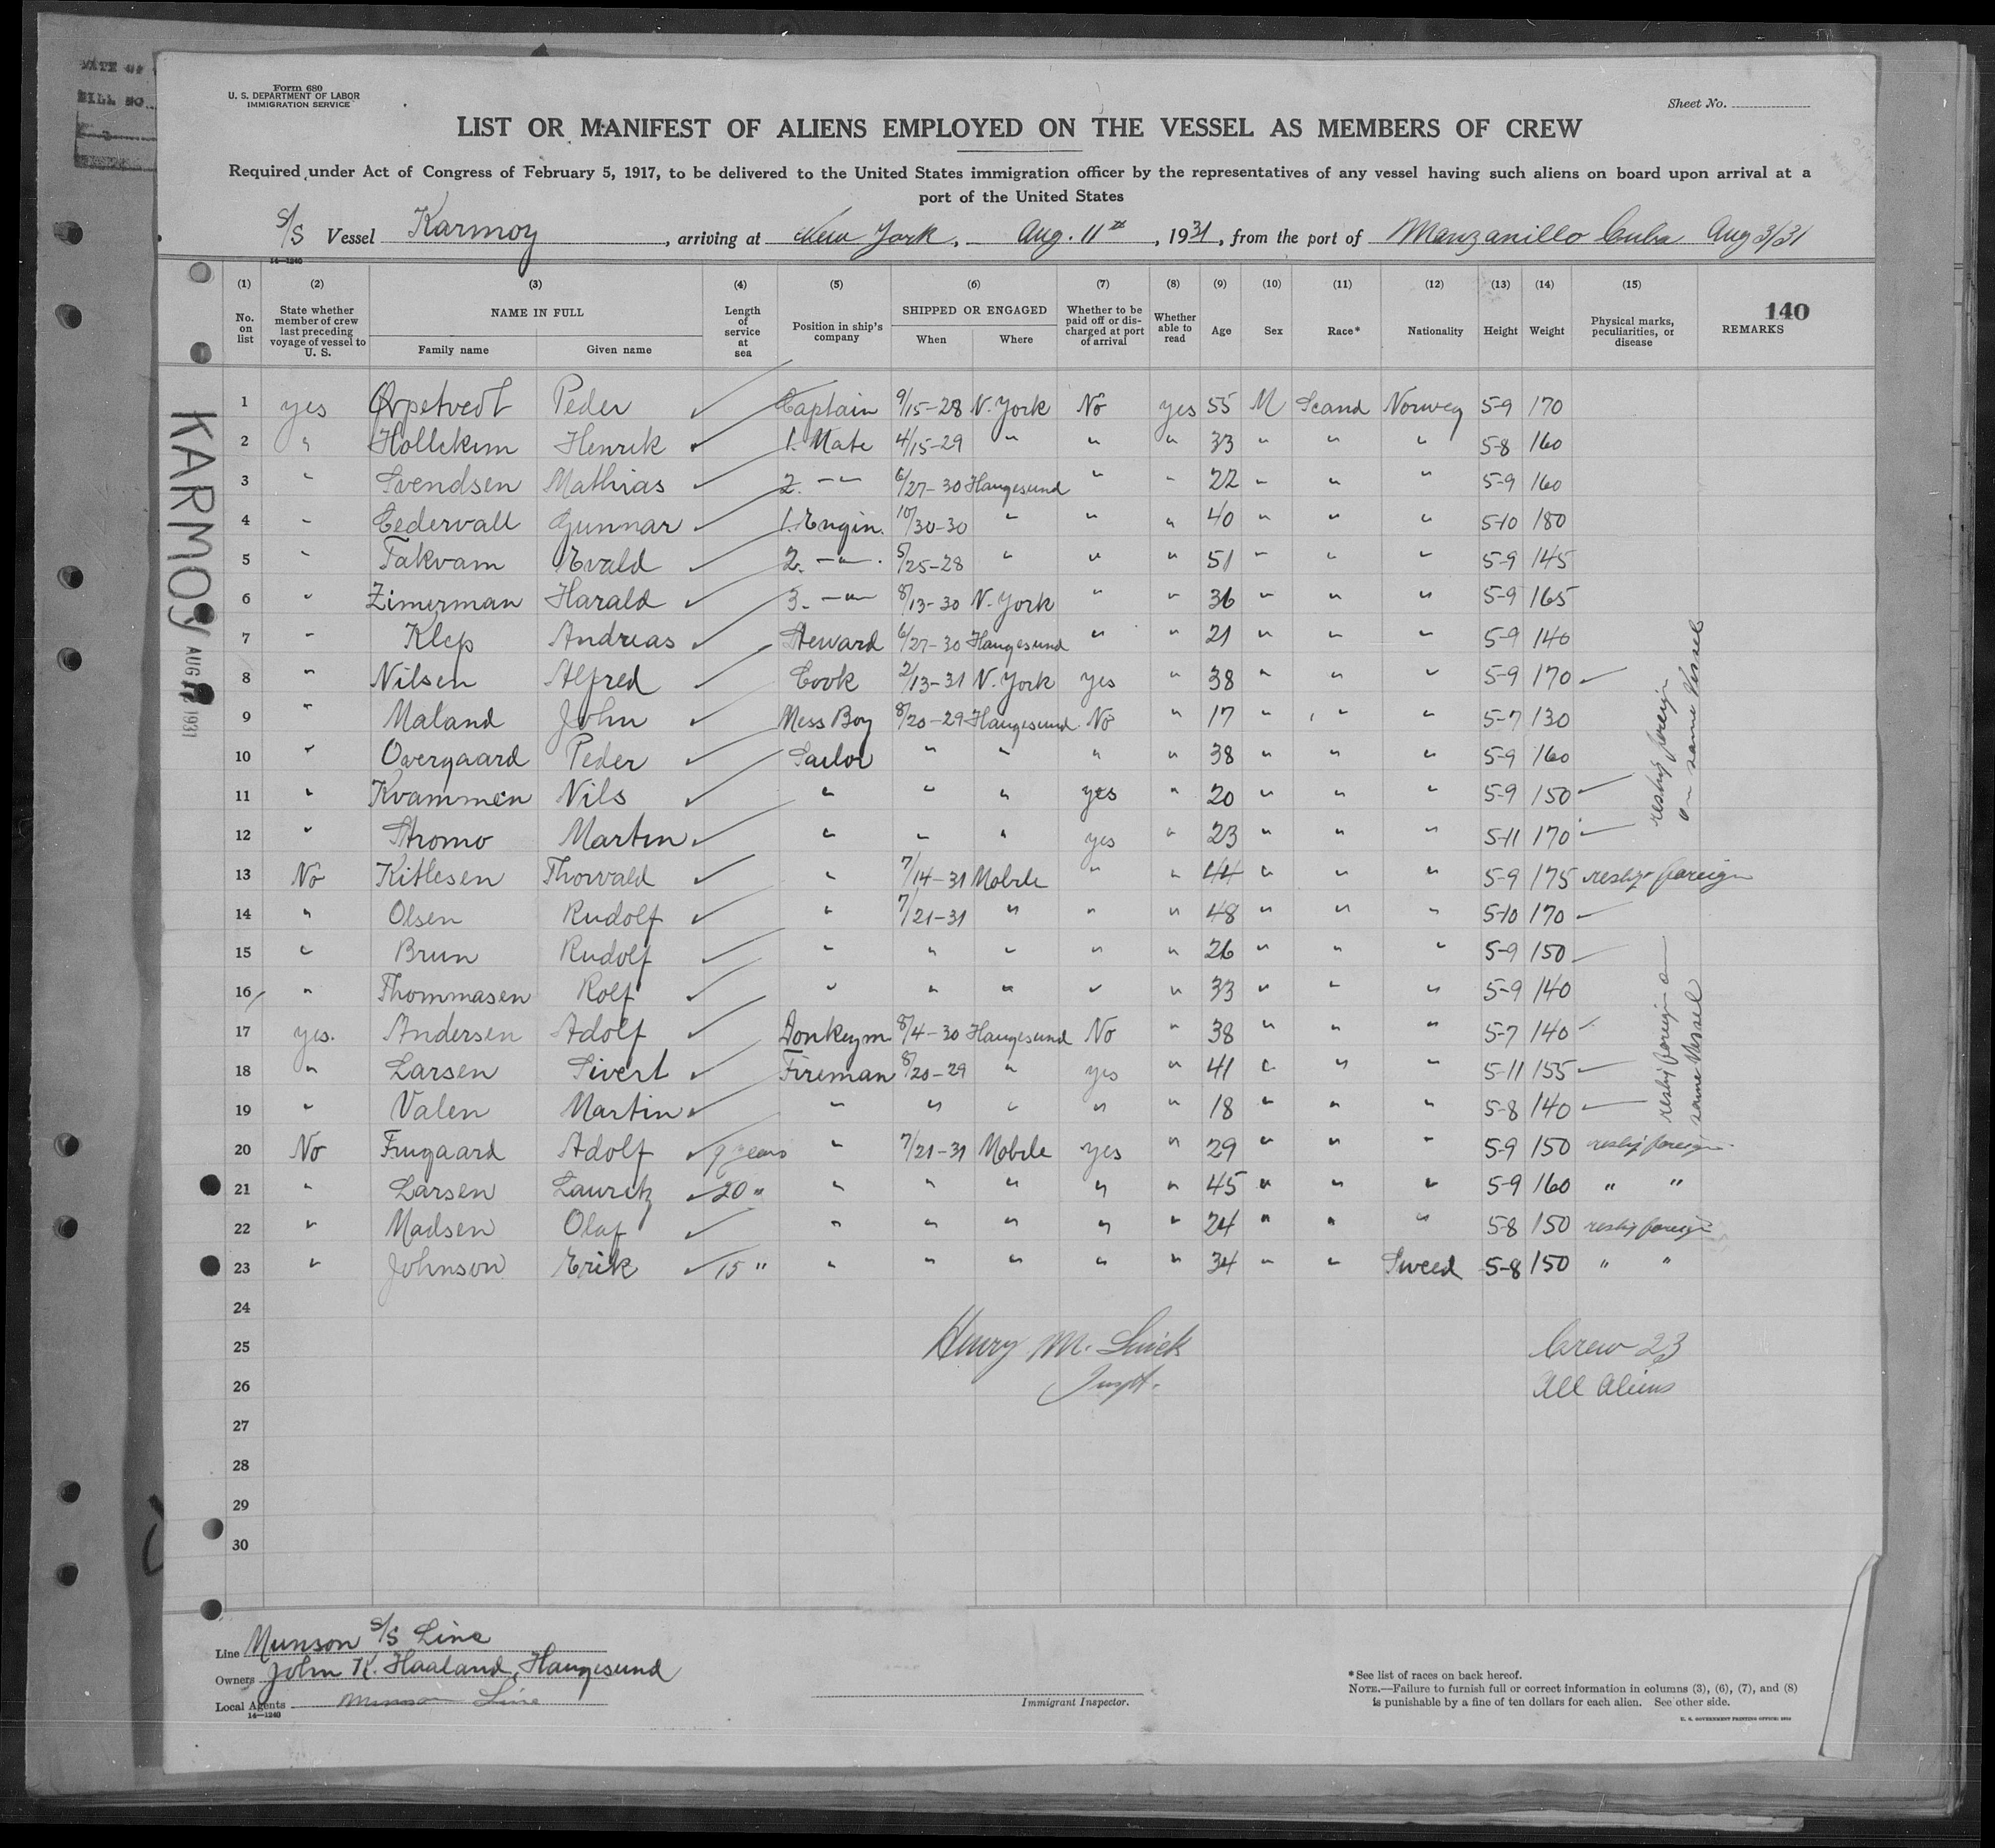 Form 680
U. S. DEPARTMENT OF LABOR
IMMIGRATION SERVICE
Sheet No.
LIST OR MANIFEST OF ALIENS EMPLOYED ON THE VESSEL AS MEMBERS OF CREW
Required under Act of Congress of February 5, 1917, to be delivered to the United States immigration officer by the representatives of any vessel having such aliens on board upon arrival at a
port of the United States
S/S Vessel Karmoy, arriving at New York, Aug. 11th, 1931, from the port of Manzanillo Cuba Aug 3/31
14—1240
(1) (2) (3) (4) (5) (6) (7) (8) (9) (10) (11) (12) (13) (14) (15)
140
No. on list | State whether member of crew last preceding voyage of vessel to U. S. | NAME IN FULL | Family name | Given name | Length of service at sea | Position in ship's company | SHIPPED OR ENGAGED | When | Where | Whether to be paid off or discharged at port of arrival | Whether able to read | Age | Sex | Race* | Nationality | Height | Weight | Physical marks, peculiarities, or disease | REMARKS
1 yes Ørpetvedt Peder Captain 9/15-28 N. York No yes 55 M Scand Norweg 5-9 170
2 " Hollekim Henrik 1. Mate 4/15-29 " " " 33 " " " 5-8 160
3 " Svendsen Mathias 2. -"- 6/27-30 Haugesund " " 22 " " " 5-9 160
4 " Cedervall Gunnar 1. Engin. 10/30-30 " " " 40 " " " 5-10 180
5 " Takvam Evald 2. -"- 5/25-28 " " " 51 " " " 5-9 145
6 " Zimerman Harald 3. -"- 8/13-30 N. York " " 36 " " " 5-9 165
7 " Klep Andreas Steward 6/27-30 Haugesund " " 21 " " " 5-9 140
8 " Nilsen Alfred Cook 2/13-31 N. York yes " 38 " " " 5-9 170
9 " Maland John Mess Boy 8/20-29 Haugesund No " 17 " " " 5-7 130
10 " Overgaard Peder Sailor " " " " 38 " " " 5-9 160
11 " Kvammen Nils " " " yes " 20 " " " 5-9 150
12 " Stromo Martin " " " yes " 23 " " " 5-11 170
reship foreign
on same Vessel
13 No Kitlesen Thorvald " 7/14-31 Mobile " " 44 " " " 5-9 175 reship foreign
14 " Olsen Rudolf " 7/21-31 " " " 48 " " " 5-10 170
15 " Brun Rudolf " " " " " 26 " " " 5-9 150
16 " Thommasen Rolf " " " " " 33 " " " 5-9 140
17 yes. Andersen Adolf Donkeym 8/4-30 Haugesund No " 38 " " " 5-7 140
18 " Larsen Sivert Fireman 8/20-29 " yes " 41 " " " 5-11 155
19 " Valen Martin " " " " " 18 " " " 5-8 140
reship foreign on
same Vessel
20 No Frugaard Adolf 9 years " 7/21-31 Mobile yes " 29 " " " 5-9 150 reship foreign
21 " Larsen Lauretz 20 " " " " " " 45 " " " 5-9 160 " "
22 " Madsen Olaf " " " " " 24 " " " 5-8 150 reship foreign
23 " Johnson Erik 15 " " " " " " 34 " " Sweed 5-8 150 " "
24
25 Henry M. Crew 23
26 Inspt. All Aliens
27
28
29
30
KARMOY
AUG 12 1931
Line Munson S/S Line
Owners John K. Haaland, Haugesund
Local Agents Munson Line
14—1240
Immigrant Inspector.
*See list of races on back hereof.
NOTE.—Failure to furnish full or correct information in columns (3), (6), (7), and (8)
is punishable by a fine of ten dollars for each alien. See other side.